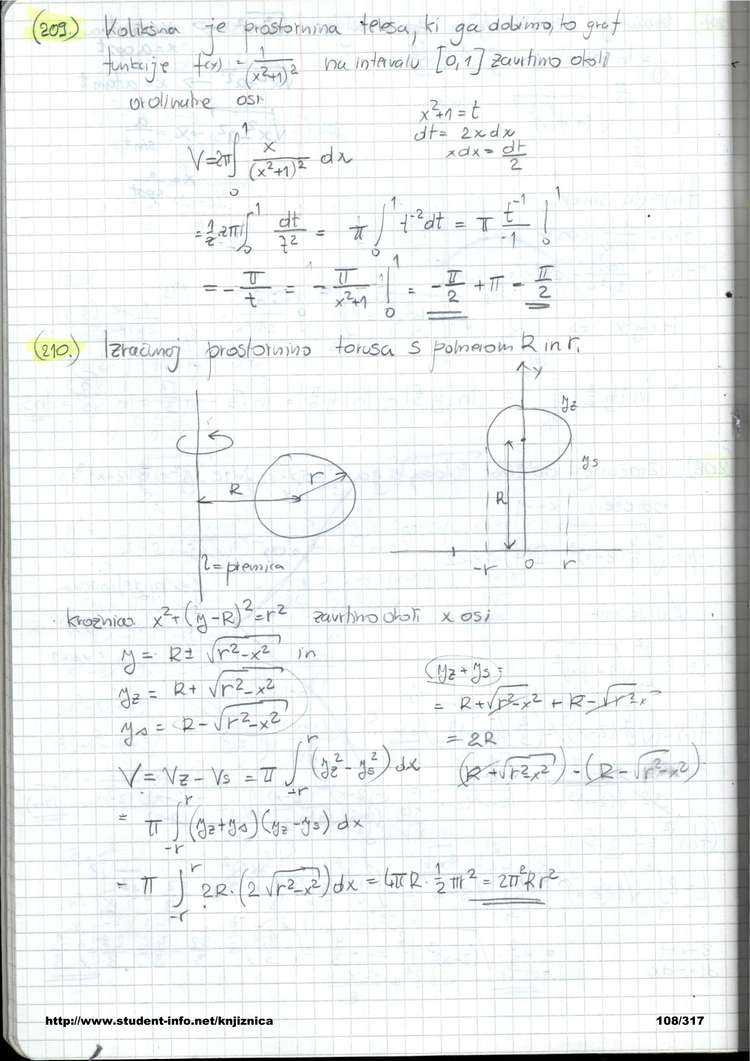 (209.) Kolikšna je prostornina telesa, ki ga dobimo, ko graf
funkcije f(x) = 1/(x²+1)² na intervalu [0,1] zavrtimo okoli
ordinatne osi.
x²+1 = t
dt = 2x dx
x dx = dt/2
V = 2π ∫₀¹ x/(x²+1)² dx
= 1/2 · 2π ∫₀¹ dt/t² = π ∫₀¹ t⁻² dt = π t⁻¹/-1 |₀¹
= - π/t = - π/(x²+1) |₀¹ = - π/2 + π = π/2
(210.) Izračunaj prostornino torusa s polmerom R in r.
y
yz
ys
R
r
R
l = premica
-r 0 r
Krožnica x² + (y-R)² = r² zavrtimo okoli x osi
y = R ± √(r²-x²) in
yz = R + √(r²-x²)
ys = R - √(r²-x²)
(yz + ys) =
= R + √(r²-x²) + R - √(r²-x²)
= 2R
(R + √(r²-x²)) - (R - √(r²-x²))
V = Vz - Vs = π ∫₋ᵣʳ (yz² - ys²) dx
= π ∫₋ᵣʳ (yz+ys)(yz-ys) dx
= π ∫₋ᵣʳ 2R · (2√(r²-x²)) dx = 4πR · 1/2 πr² = 2π²Rr²
http://www.student-info.net/knjiznica 108/317